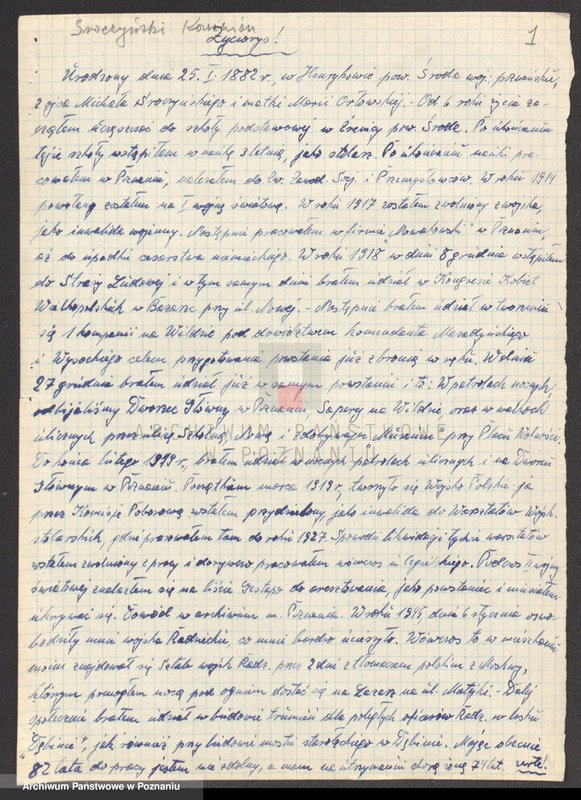 Sroczyński Kazimierz
1
Życiorys!
Urodzony dnia 25. I. 1882 r., w Henrykowie pow. Środa woj. poznańskie,
z ojca Michała Sroczyńskiego i matki Marii Orłowskiej. - Od 6 roku życia za-
cząłem uczęszczać do szkoły podstawowej w pow. Środa. Po ukończeniu
tejże szkoły wstąpiłem w naukę 3 letnią, jako stolarz. Po ukończeniu nauki pra-
cowałem w Poznaniu, należałem do Zw. Zawod. i Przemysłowców. W roku 1914
powołany zostałem na I wojnę światową. W roku 1917 zostałem zwolniony z wojska,
jako inwalida wojenny. Następnie pracowałem w firmie "Nowakowski" w Poznaniu,
aż do upadku cesarstwa niemieckiego. W roku 1918 w dniu 8 grudnia wstąpiłem
do Straży Ludowej i w tym samym dniu brałem udział w Kongresie Kobiet
Wielkopolskich w Bazarze przy ul. Nowej. - Następnie brałem udział w tworzeniu
się 1 kompanii na Wildzie pod dowództwem komendanta
i Wysockiego celem przygotowania powstania już z bronią w ręku. W dniu
27 grudnia brałem udział już w samym powstaniu i to: W patrolach nocnych,
odbijaliśmy Dworzec Główny w Poznaniu, Sapery na Wildzie oraz w walkach
ulicznych przez ulicę Szkolną, Nową i zdobywając Muzeum przy Placu Wolności.
Do końca lutego 1919 r., brałem udział w nocnych patrolach ulicznych i na Dworcu
Głównym w Poznaniu. Początkiem marca 1919 r., tworzyło się Wojsko Polskie ja
przez Komisję Poborową zostałem przydzielony, jako inwalida do Warsztatów Wojsk.
stolarskich, gdzie pracowałem tam do roku 1927. Z powodu likwidacji tychże warsztatów
zostałem zwolniony z pracy i dorywczo pracowałem wówczas u Cegielskiego. Podczas II wojny
światowej znalazłem się na liście Gestapo do aresztowania, jako powstaniec i musiałem
ukrywać się. Dowód w archiwum m. Poznania. W roku 1945, dnia 6 stycznia oswo-
bodziły mnie wojska Radzieckie, co mnie bardzo ucieszyło. Wówczas to w mieszkaniu
moim znajdował się Sztab wojsk Radz. przez 2 dni z tłomaczem polskim z Moskwy,
którym pomogłem nocą pod ogniem dostać się na Łazarz na ul. Matejki. - Dalej
społecznie brałem udział w budowie trumien dla poległych ofiarów Radz. w lasku
"Dębinie", jak również przy budowie mostu starołęckiego w Dębinie. Mając obecnie
82 lata do pracy jestem nie zdolny, a mam na utrzymaniu chorą żonę 74 lat verte!
ARCHIWUM PAŃSTWOWE
W POZNANIU
Archiwum Państwowe w Poznaniu